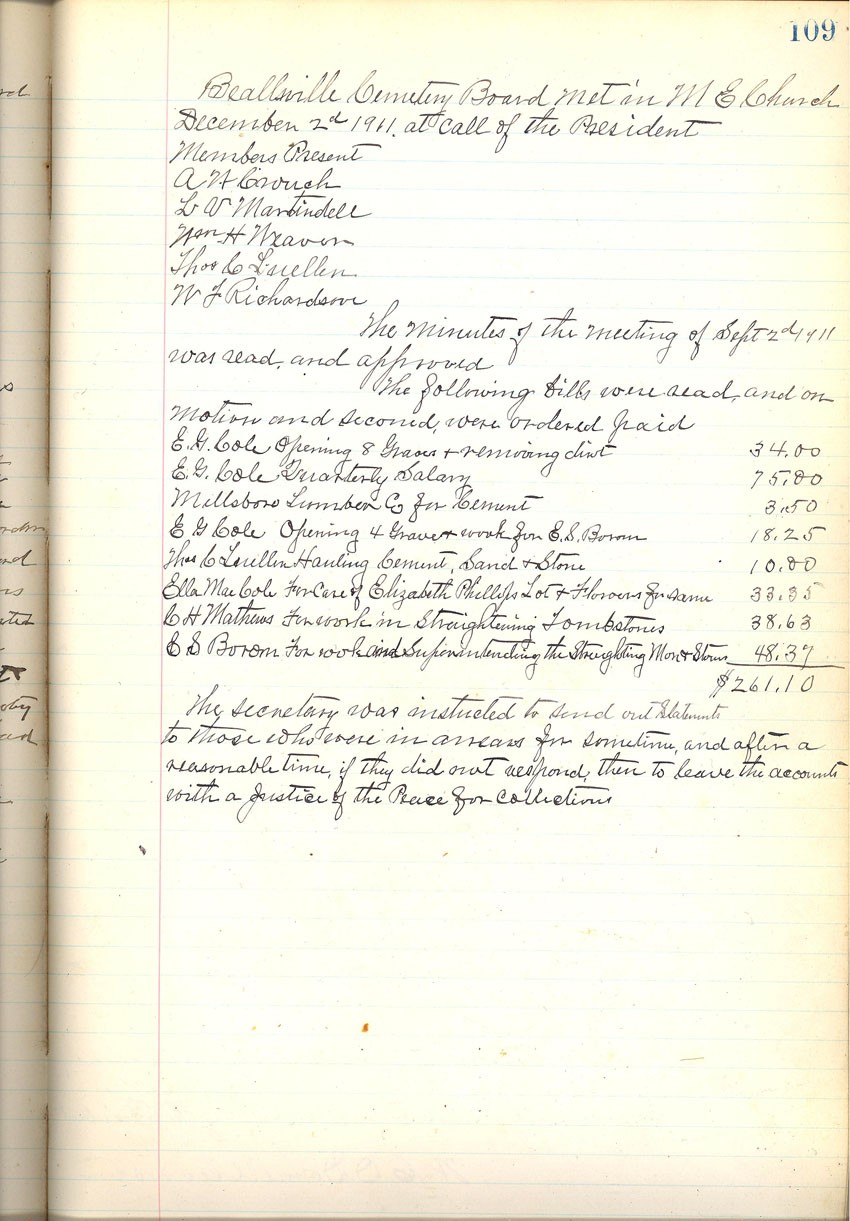 109
Beallsville Cemetery Board met in M E Church
December 2d 1911. at call of the President
Members Present
A H Crouch
L V Martindell
Wm H Weaver
Thos C Luellen
W F Richardson
The minutes of the meeting of Sept 2d 1911
was read, and approved
The following bills were read, and on
motion and second, were ordered paid
E. G. Cole Opening 8 Graves + removing dirt 34.00
E. G. Cole Quarterly Salary 75.00
Millsboro Lumber Co for Cement 3.50
E G Cole Opening 4 Graves + work for E. S. Borom 18.25
Thos C Luellen Hauling Cement, Sand + Stone 10.00
Ella Mae Cole For Care of Elizabeth Phillips Lot + Flowers for same 33.35
C H Mathews For work in Straightening Tombstones 38.63
E S Borom For work and Superintending the Mon + Stones 48.37
$261.10
The secretary was instucted to send out Statements
to those who were in arears for sometime, and after a
reasonable time, if they did not respond, then to leave the accounts
with a Justice of the Peace for collections